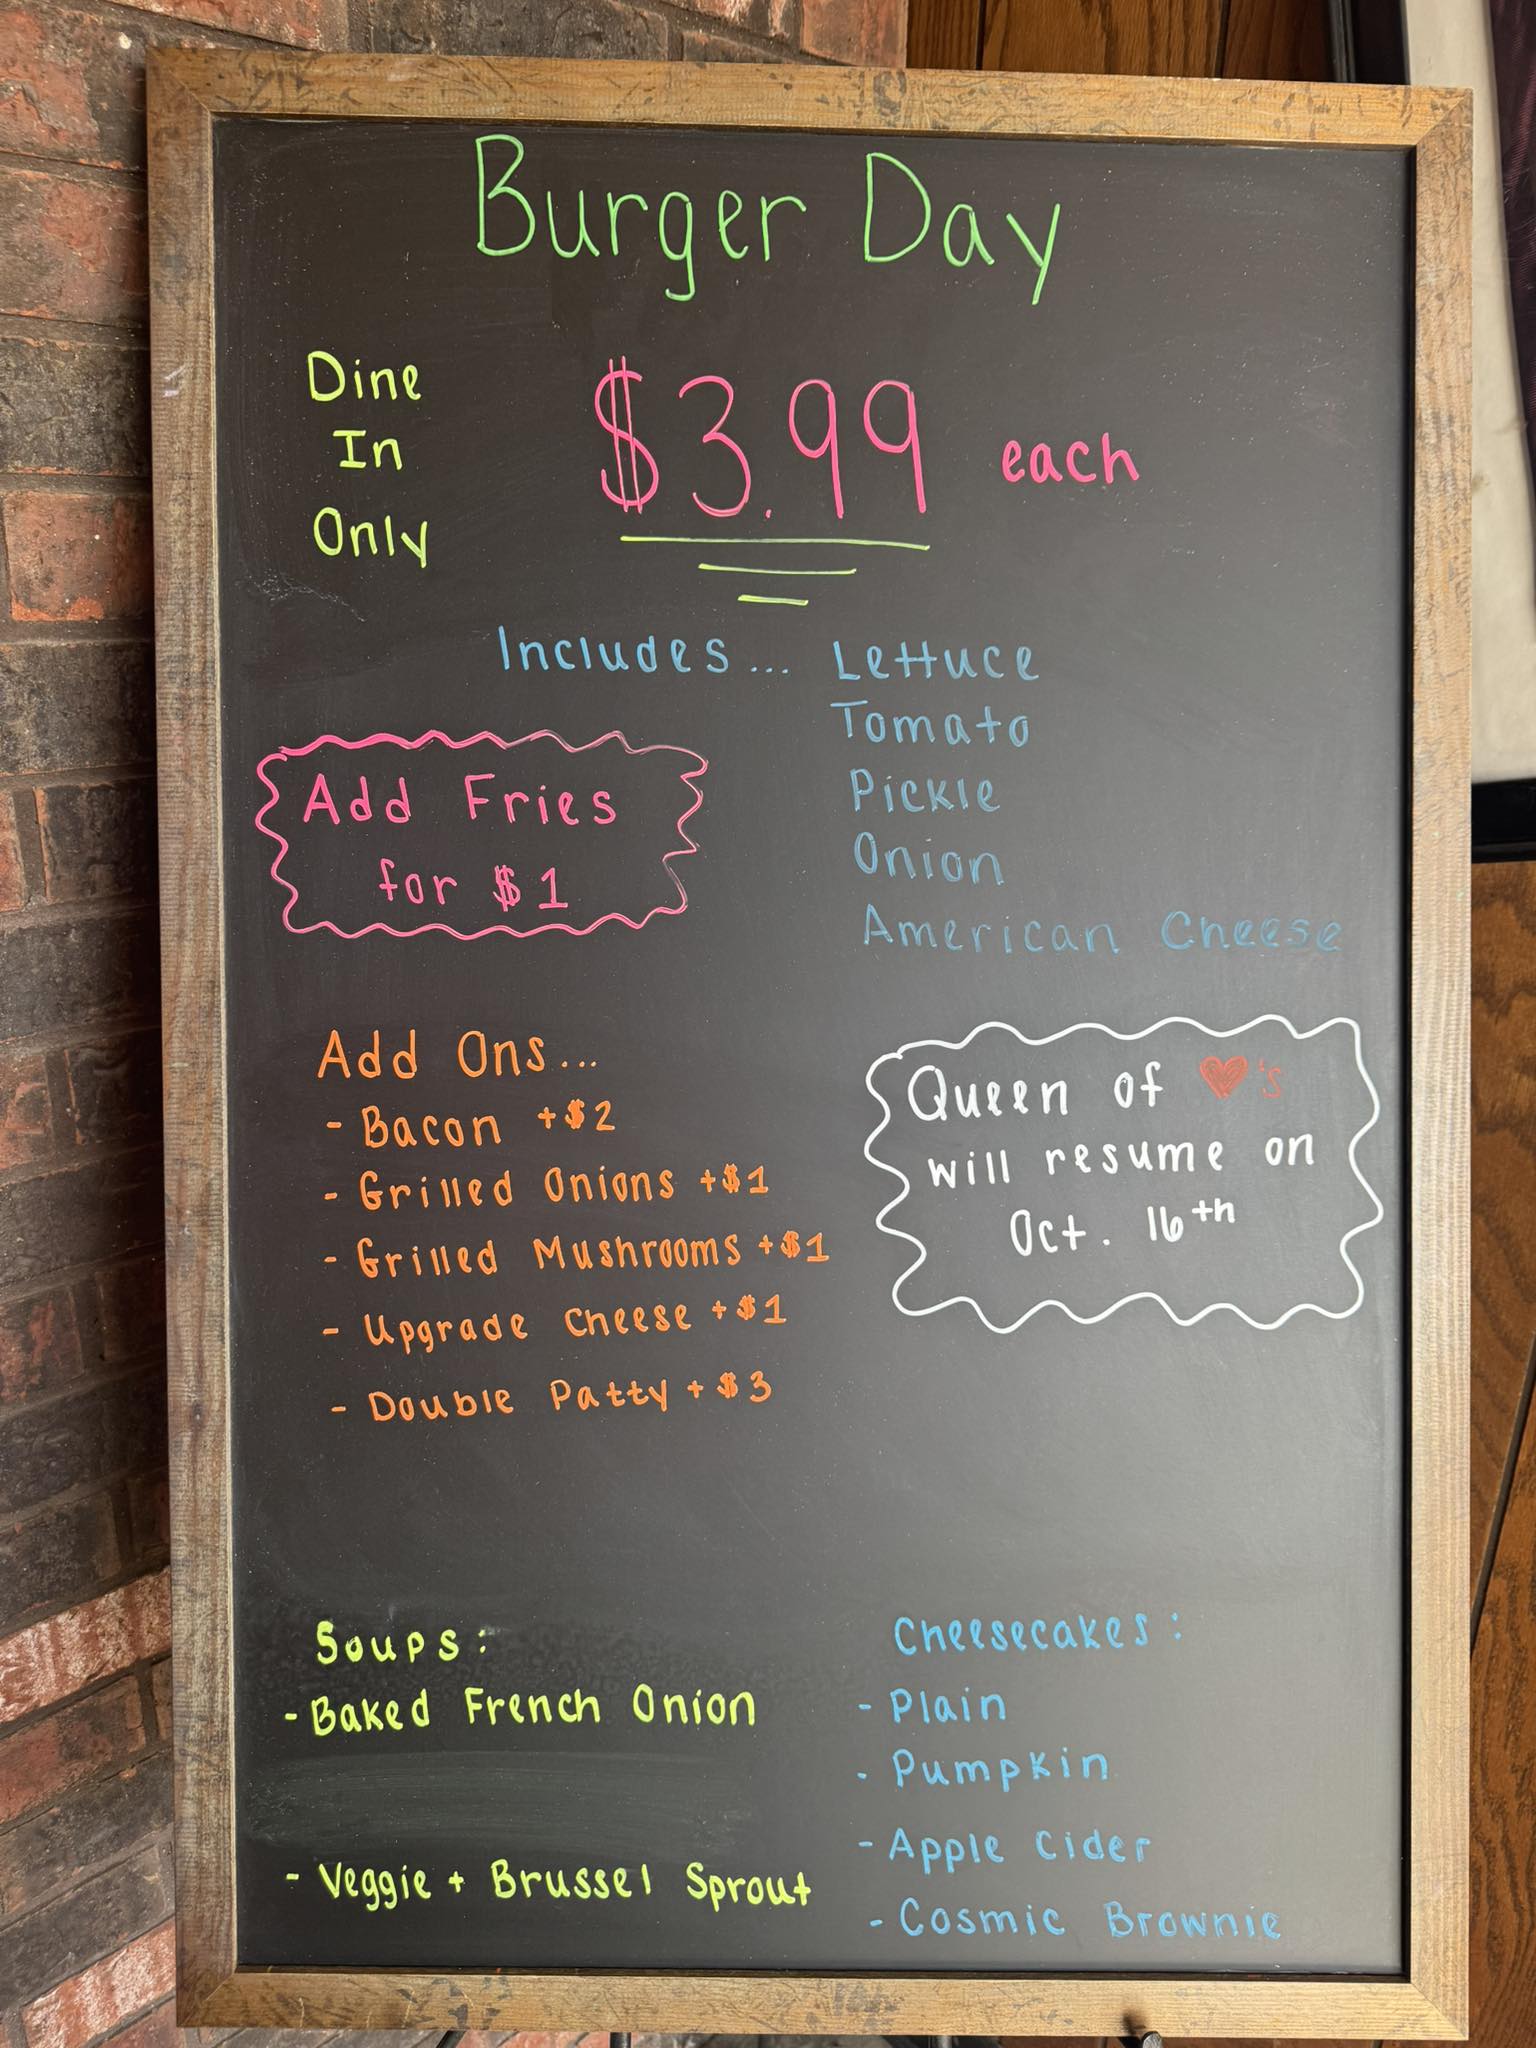 Burger Day
Dine
In
Only
$3.99 each
Includes... Lettuce
Tomato
Pickle
Onion
American Cheese
Add Fries
for $1
Add Ons...
- Bacon +$2
- Grilled Onions +$1
- Grilled Mushrooms +$1
- Upgrade Cheese +$1
- Double Patty +$3
Queen of ♥'s
will resume on
Oct. 16th
Soups:
- Baked French Onion
- Veggie + Brussel Sprout
Cheesecakes:
- Plain
- Pumpkin
- Apple Cider
- Cosmic Brownie